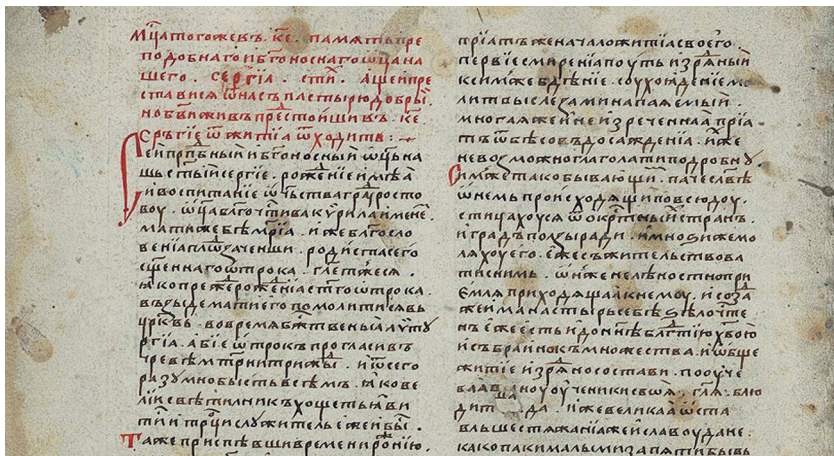 мⷭ҇ца тогоже въ. к҃е. память пре
подобнаго и бг҃оноснаго ѿц҃а на
шего. сергїа. стиⷯ. аще и пре
ставися ѿ насъ пастырю добрыи.
но бв҃и живъ преⷣстоиши. въ. к҃е.
сергїе ѿ житїа ѿходитъ:
сеи прпⷣбныи и бг҃оносныи ѿц҃ь на
шь ст҃ыи сергїе. роженїе имѣа
и воспитанїе ѿчьства граⷣ росто
воу. ѿц҃а блг҃очтⷭива кѵрила именеⷨ.
мати же бѣ мр҃їа. иже блг҃осло
венїа плоⷣ заченши. роди спасего
сщ҃еннаго ѿтрока. гл҃етжеся.
ꙗко преже роженїа ст҃го ѿтрока.
въ
црк҃въ. во время бжⷭтвеныа литꙋ
ргїа. абїе ѿтрокъ прогласивъ
чревѣ мт҃рни трижⷣы. и ѿ сего
разꙋмно бысть всѣмъ. ꙗко ве
лїи свѣтилникъ хощетъ ꙗви
ти и трⷪ҇ци слꙋжитель
таже приспѣвши времени рожⷣенїю.
прїатъ же начало житїа своего.
первїе смиренїа поуть изряⷣныи
к симже бдѣнїе. соухояденїе мо
литвы слезами напааемыи.
многаа же и неизреченнаа прїа
тъ ѿ бѣсовъ досаженїа. иⷯже
невозможно глаголати подробнꙋ.
симже тако бывающиⷨ. паче славѣ
ѿ немъ происходящи повсюдоу.
стицахоуся ѿ окртⷭныⷯ странъ.
и градъ ползы ради. и мнози жемо
ляхоу его. еже съжительствова
ти с нимь. ѿнже нелѣностно при
емля приходящаа к немоу. и созⷣа
же и манастырь себѣ зѣло чтⷭе
нъ еже есть и до ннѣ блг҃тїю хв҃ою
и събра инокъ множества. и ѡбще
житїе изряⷣно състави. пооуче
ноу оученики своя, гл҃я. блю
дит да. иже велика
вльше стяжанїа же и славоу дане.
како пакималыми запятибывь